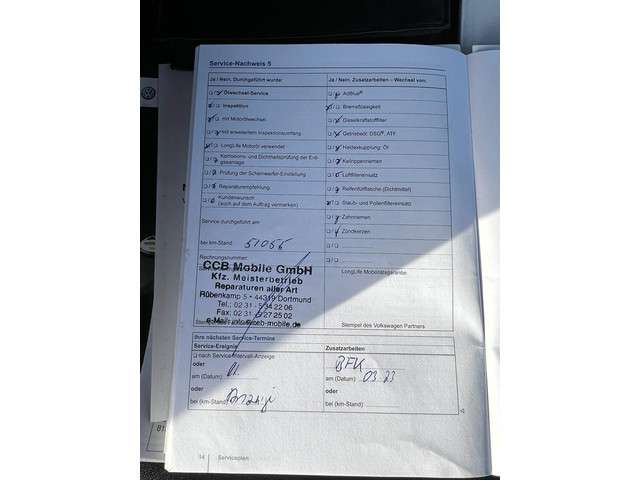 Service-Nachweis 5
Ja / Nein, Durchgeführt wurde:
Ölwechsel-Service
Inspektion
mit Motorölwechsel
mit erweitertem Inspektionsumfang
LongLife Motoröl verwendet
Korrosions- und Dichtheitsprüfung der Erd-
gasanlage
Prüfung der Scheinwerfer-Einstellung
Reparaturempfehlung
Kundenwunsch
(auch auf dem Auftrag vermerken)
Service durchgeführt am:
bei km-Stand:
Rechnungsnummer:
CCB Mobile GmbH
Kfz. Meisterbetrieb
Reparaturen aller Art
Rübenkamp 5 • 44319 Dortmund
Tel.: 02 31 - 5 34 22 06
Fax: 02 31 - 9 27 25 02
Ja / Nein, Zusatzarbeiten – Wechsel von:
AdBlue®
Bremsflüssigkeit
Dieselkraftstofffilter
Getriebeöl: DSG®, ATF
Haldexkupplung: Öl
Keilrippenriemen
Luftfiltereinsatz
Reifenfüllflasche (Dichtmittel)
Staub- und Pollenfiltereinsatz
Zahnriemen
Zündkerzen
LongLife Mobilitätsgarantie:
Stempel des Volkswagen Partners
Ihre nächsten Service-Termine
Service-Ereignis
nach Service-Intervall-Anzeige
oder
am (Datum):
oder
bei (km-Stand):
Zusatzarbeiten
BFK
am (Datum): 03.23
oder
bei (km-Stand):
14 Serviceplan